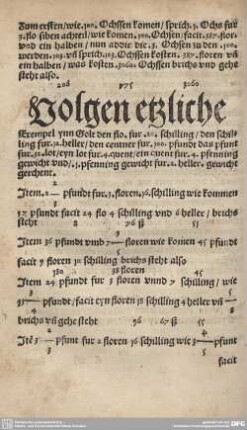 Zum ersten/wie .300. Ochssen komen/ sprich .3. Ochs für
3. flo siben achteil/wie komen .300. Ochsen/facit .387. flor.
vnd ein halben / nun addir die .3. Ochsen zu den .300.
werden .303. vñ sprich .103. Ochssen kosten .387. floren vñ
ein halben / was kosten .3060. Ochssen brichs vnd gehe
steht also.
206 775 3060
Volgen etzliche
Exempel ynn Golt den flo. fur schilling / den schil
ling fur .12. heller / den centner fur .100. pfundt das pfunt
fur .32. lot/eyn lot fur .4. quent/ein quent fur .4. pfenning
gewicht vnd/ .1. pfenning gewicht fur .2. heller. gewicht
gerechent.
Item pfundt fur .3. floren .16. schilling wie kommen
pfundt facit 24 flo 4 schilling vnd 6 heller / brichs
steht 8 76 ß
Item 36 pfundt vmb 7 floren wie komen 45 pfundt
facit 9 floren schilling brichs steht also
180 38 floren 45
Item 24 pfundt fur 3 floren vnnd 7 schilling / wie
pfundt /facit eyn floren schilling 4 heller vñ
brichs vñ gehe steht 96 67 ß
Itē pfunt fur 2 floren 16 schilling wie pfunt
facit